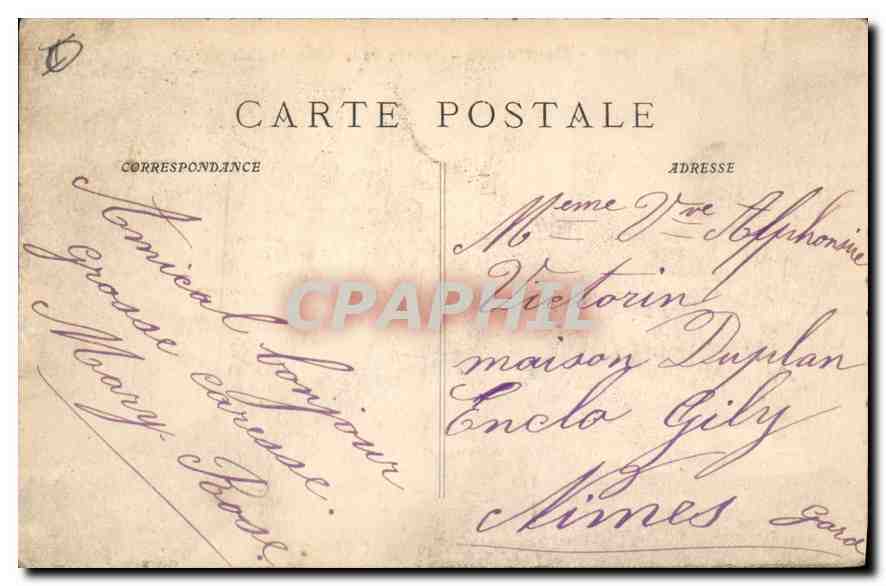 CARTE POSTALE
CORRESPONDANCE
ADRESSE
Amical bonjour
grosse caresse.
Mary. Rose.
Meme Vve Alphonsine
Victorin
maison Duplan
Enclo Gily
Nimes Gard
CPAPHIL